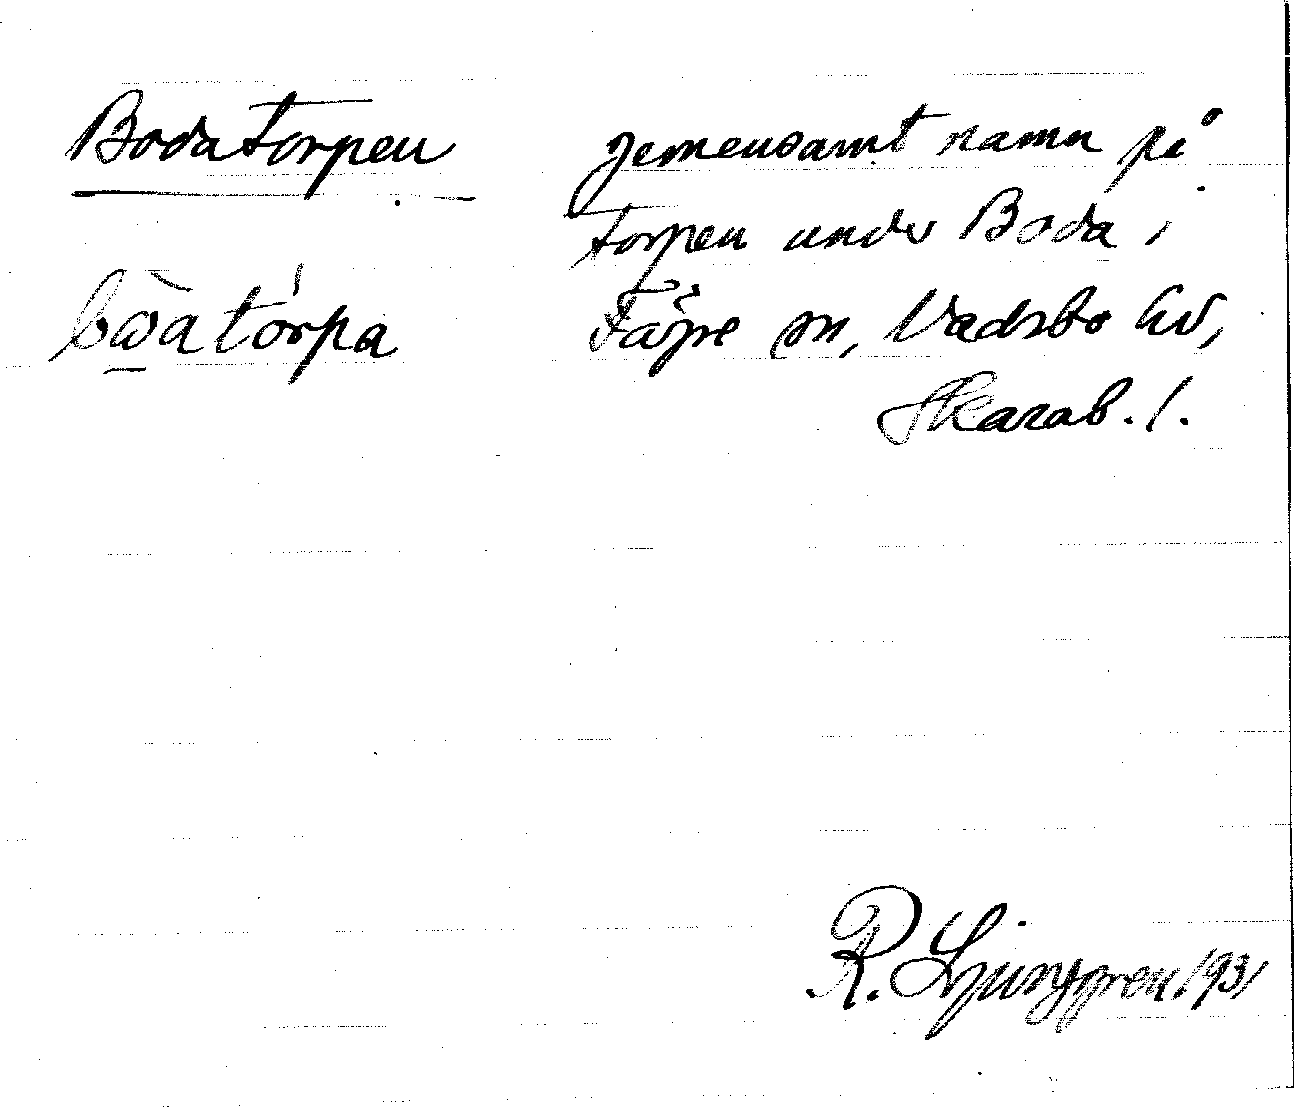 Bodatorpen
gemensamt namn på
torpen under Boda i
Färe sn, Vadsbo hd,
Skarab. l.
R. Ljunggren 1931